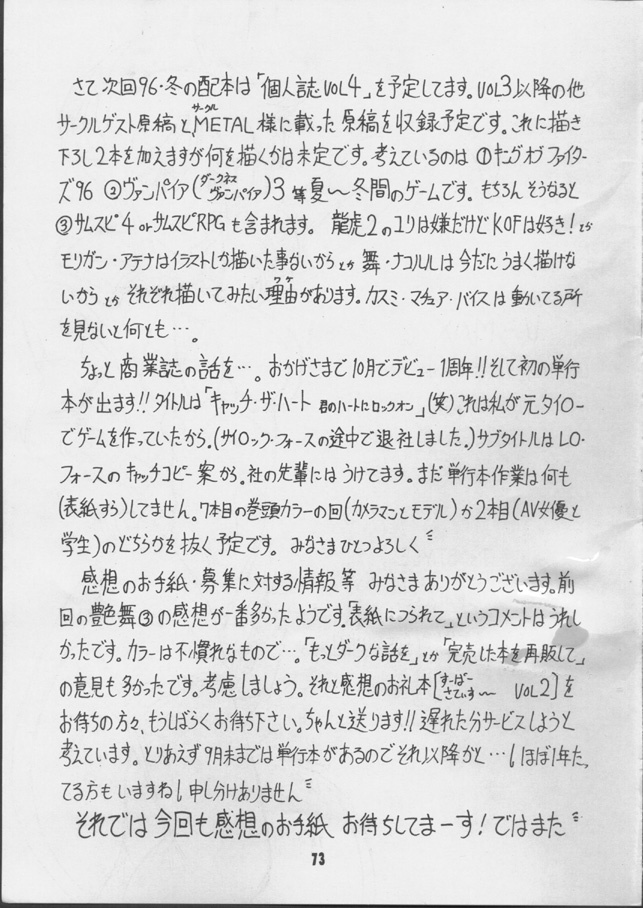 さて次回96・冬の配本は「個人誌VOL4」を予定してます。VOL3以降の他
サークルゲスト原稿と、METAL様に載った原稿を収録予定です。これに描き
下ろし2本を加えますが何を描くかは未定です。考えているのは ①キングオブファイター
ズ96 ②ヴァンパイア(ダークネス ヴァンパイア)3 等夏〜冬間のゲームです。もちろんそうなると
③サムスピ4 or サムスピRPGも含まれます。 龍虎2のユリは嫌だけどKOFは好き!とか
モリガン・アテナはイラストしか描いた事ないからとか 舞・ナコルルは今だにうまく描けな
いからとか それぞれ描いてみたい理由があります。カスミ・マチュア・バイスは動いてる所
を見ないと何とも…。
ちょっと商業誌の話を…。おかげさまで10月でデビュー1周年!!そして初の単行
本が出ます!!タイトルは「キャッチ・ザ・ハート 君のハートにロックオン」(笑)これは私が元タイトー
でゲームを作っていたから。(サイロック・フォースの途中で退社しました。)サブタイトルはLO・
フォースのキャッチコピー案から。社の先輩にはうけてます。まだ単行本作業は何も
(表紙すら)してません。7本目の巻頭カラーの回(カメラマンとモデル)か2本目(AV女優と
学生)のどちらかを抜く予定です。 みなさまひとつよろしく
感想のお手紙・募集に対する情報等 みなさまありがとうございます。前
回の艶色舞③の感想が一番多かったようです。「表紙につられて」というコメントはうれし
かったです。カラーは不慣れなもので…。「もっとダークな話を」とか「完売した本を再販して」
の意見も多かったです。考慮しましょう。それと感想のお礼本[すーぱーさてぃすー〜 VOL2]を
お待ちの方々、もうしばらくお待ち下さい。ちゃんと送ります!!遅れた分サービスしようと
考えています。とりあえず9月末までは単行本があるのでそれ以降かと…しほぼ1年た、
てる方もいますね 申し分けありません
それでは今回も感想のお手紙 お待ちしてまーす!ではまた
73